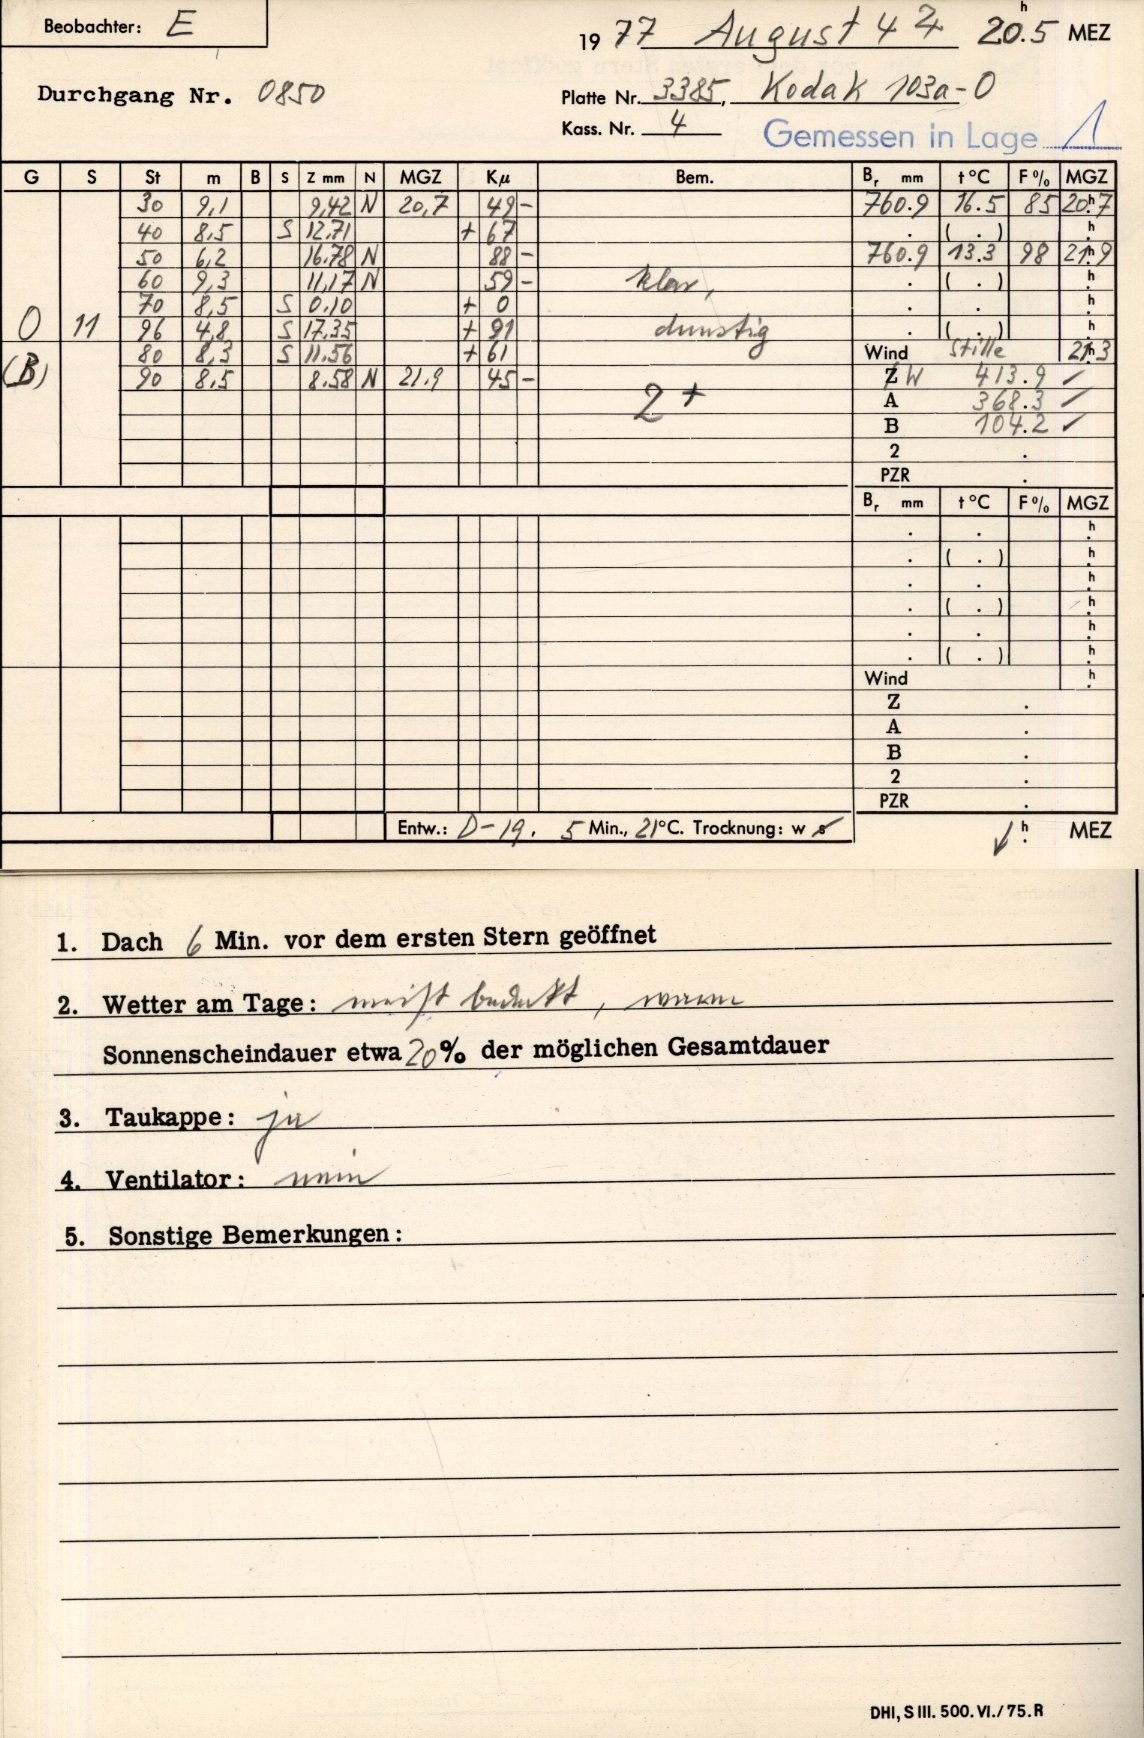 Beobachter: E
1977 August 4 20.5 h MEZ
Durchgang Nr. 0850
Platte Nr. 3385, Kodak 103a-O
Kass. Nr. 4
Gemessen in Lage 1
G S St m B S Z mm N MGZ Kµ Bem. Br mm t °C F % MGZ
30 9,1 9,42 N 20,7 49 - 760.9 16.5 85 20h.7
40 8,5 S 12,71 + 67 . ( . ) h.
50 6,2 16,78 N 88 - 760.9 13.3 98 21h.9
60 9,3 11,17 N 59 - klar, . ( . ) h.
70 8,5 S 0,10 + 0 . . h.
O 11 96 4,8 S 17,35 + 91 dunstig . ( . ) h.
(B) 80 8,3 S 11,56 + 61 Wind Stille 21h.3
90 8,5 8.58 N 21.9 45 - Z W 413.9 ✓
2 + A 368.3 ✓
B 104.2 ✓
2 .
PZR .
Br mm t °C F % MGZ
. . h.
. ( . ) h.
. . h.
. ( . ) h.
. . h.
. ( . ) h.
Wind h.
Z .
A .
B .
2 .
PZR .
Entw.: D-19. 5 Min., 21°C. Trocknung: w s
h. MEZ
1. Dach 6 Min. vor dem ersten Stern geöffnet
2. Wetter am Tage: meist bedeckt, warm
Sonnenscheindauer etwa 20% der möglichen Gesamtdauer
3. Taukappe: ja
4. Ventilator: nein
5. Sonstige Bemerkungen:
DHI, S III. 500. VI./75. R